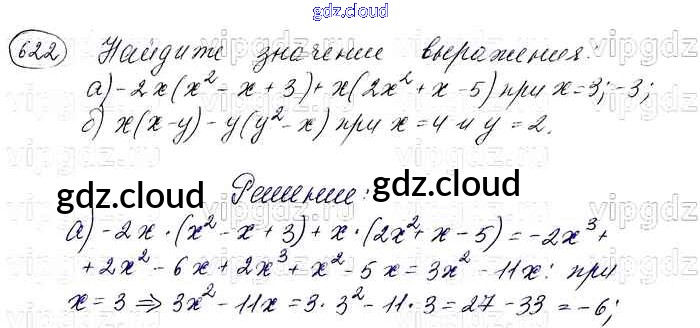 gdz.cloud
622. Найдите значение выражения:
а) -2x(x² - x + 3) + x(2x² + x - 5) при x = 3; -3;
б) x(x-y) - y(y² - x) при x = 4 и y = 2.
gdz.cloud Решение: gdz.cloud
а) -2x · (x² - x + 3) + x · (2x² + x - 5) = -2x³ +
+ 2x² - 6x + 2x³ + x² - 5x = 3x² - 11x: при
x = 3 ⇒ 3x² - 11x = 3 · 3² - 11 · 3 = 27 - 33 = -6;